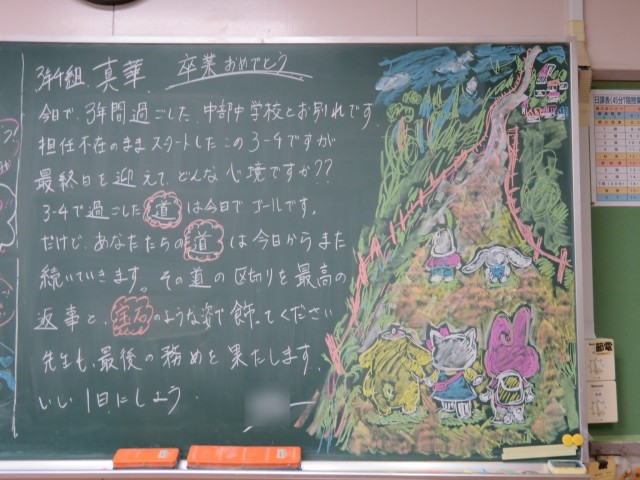 3年4組 真華 卒業おめでとう
今日で、3年間過ごした、中部中学校とお別れです。
担任不在のままスタートしたこの3-4ですが
最終日を迎えて、どんな心境ですか??
3-4で過ごした道は今日でゴールです。
だけど、あなたたちの道は今日からまた
続いていきます。その道の区切りを最高の
返事と、宝石のような姿で飾ってください
先生も、最後の務めを果たします。
いい1日にしよう。
日課表(45分7限授
節電